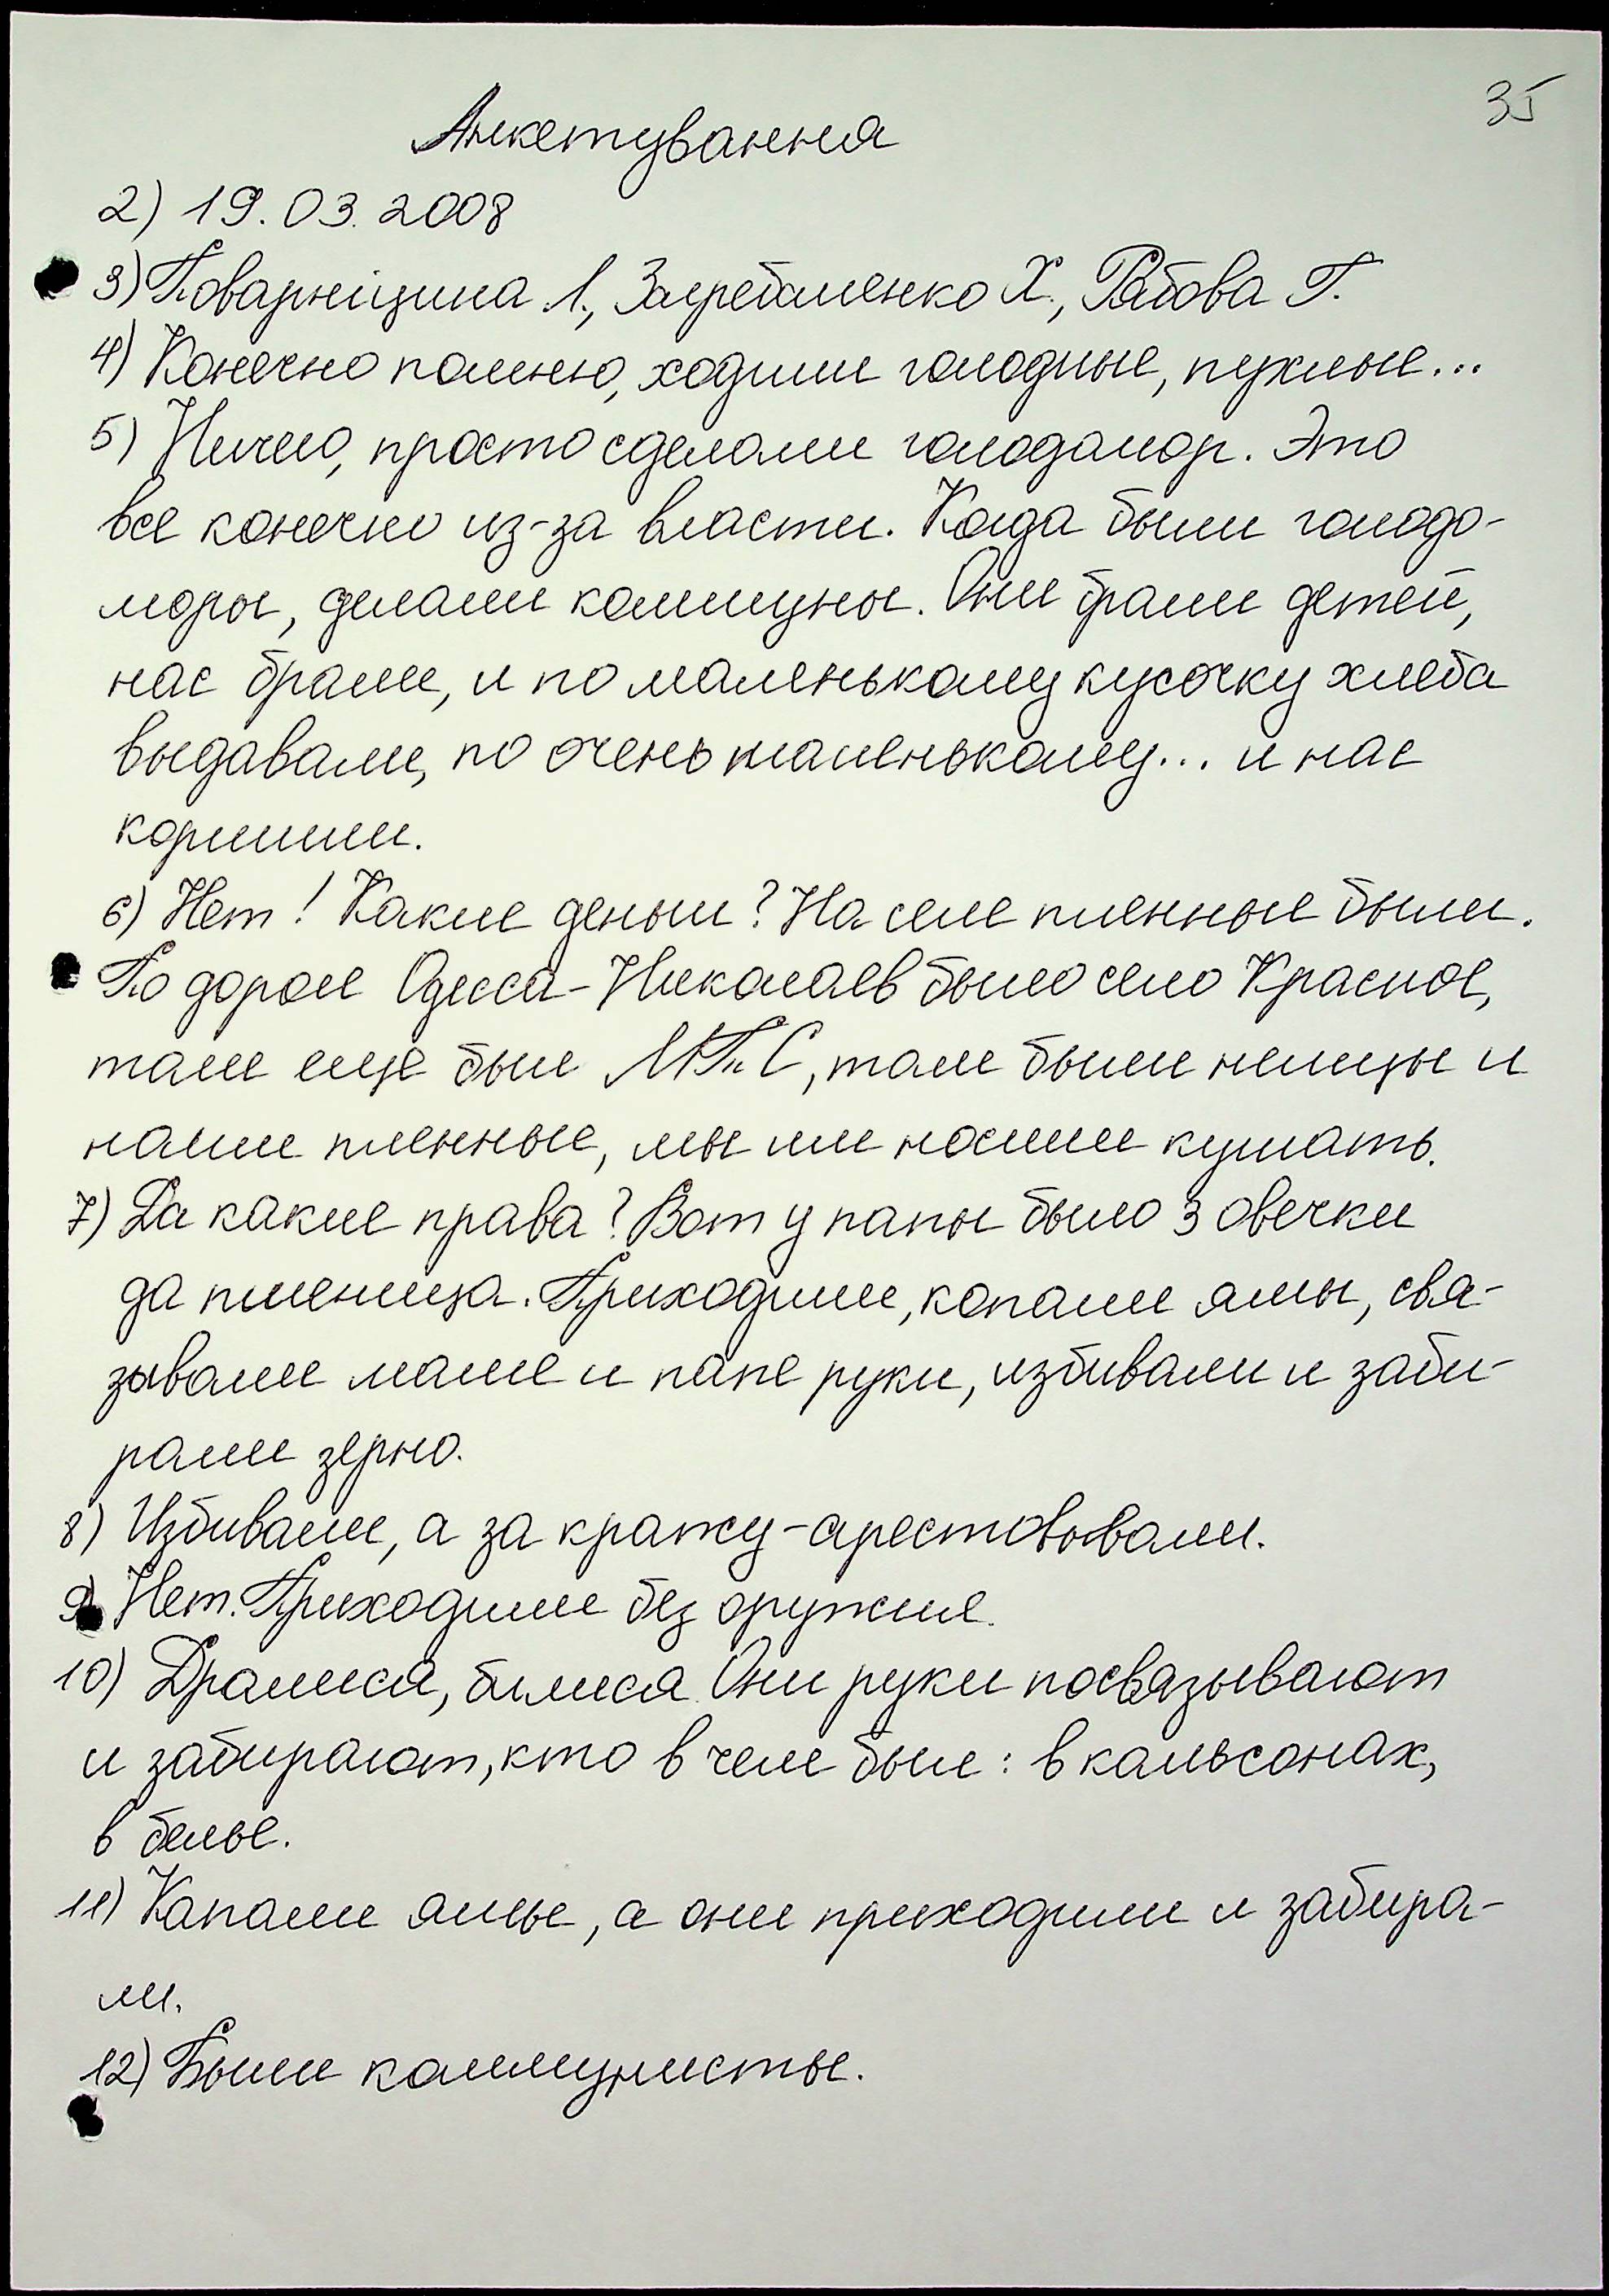 35
Анкетування
2) 19.03.2008
3) Поварніцина Л., Загребаленко Х., Рябова Г.
4) Конечно помню, ходили голодные, пухлые...
5) Ничего, просто сделали голодамор. Это
все конечно из-за власти. Когда были голодо-
моры, делали коммуны. Они брали детей,
нас брали, и по маленькому кусочку хлеба
выдавали, по очень маленькому... и нас
кормили.
6) Нет! Какие деньги? На селе пленные были.
По дороге Одесса-Николаев было село Красное,
там еще был МТС, там были немцы и
наши пленные, мы им носили кушать.
7) Да какие права? Вот у папы было 3 овечки
да пшеница. Приходили, копали ямы, свя-
зывали маме и папе руки, избивали и заби-
рали зерно.
8) Избивали, а за кражу-арестовывали.
9) Нет. Приходили без оружия.
10) Дрались, бились. Они руки посвязывают
и забирают, кто в чем был: в кальсонах,
в белье.
11) Капали ямы, а они приходили и забира-
ли.
12) Были коммунисты.